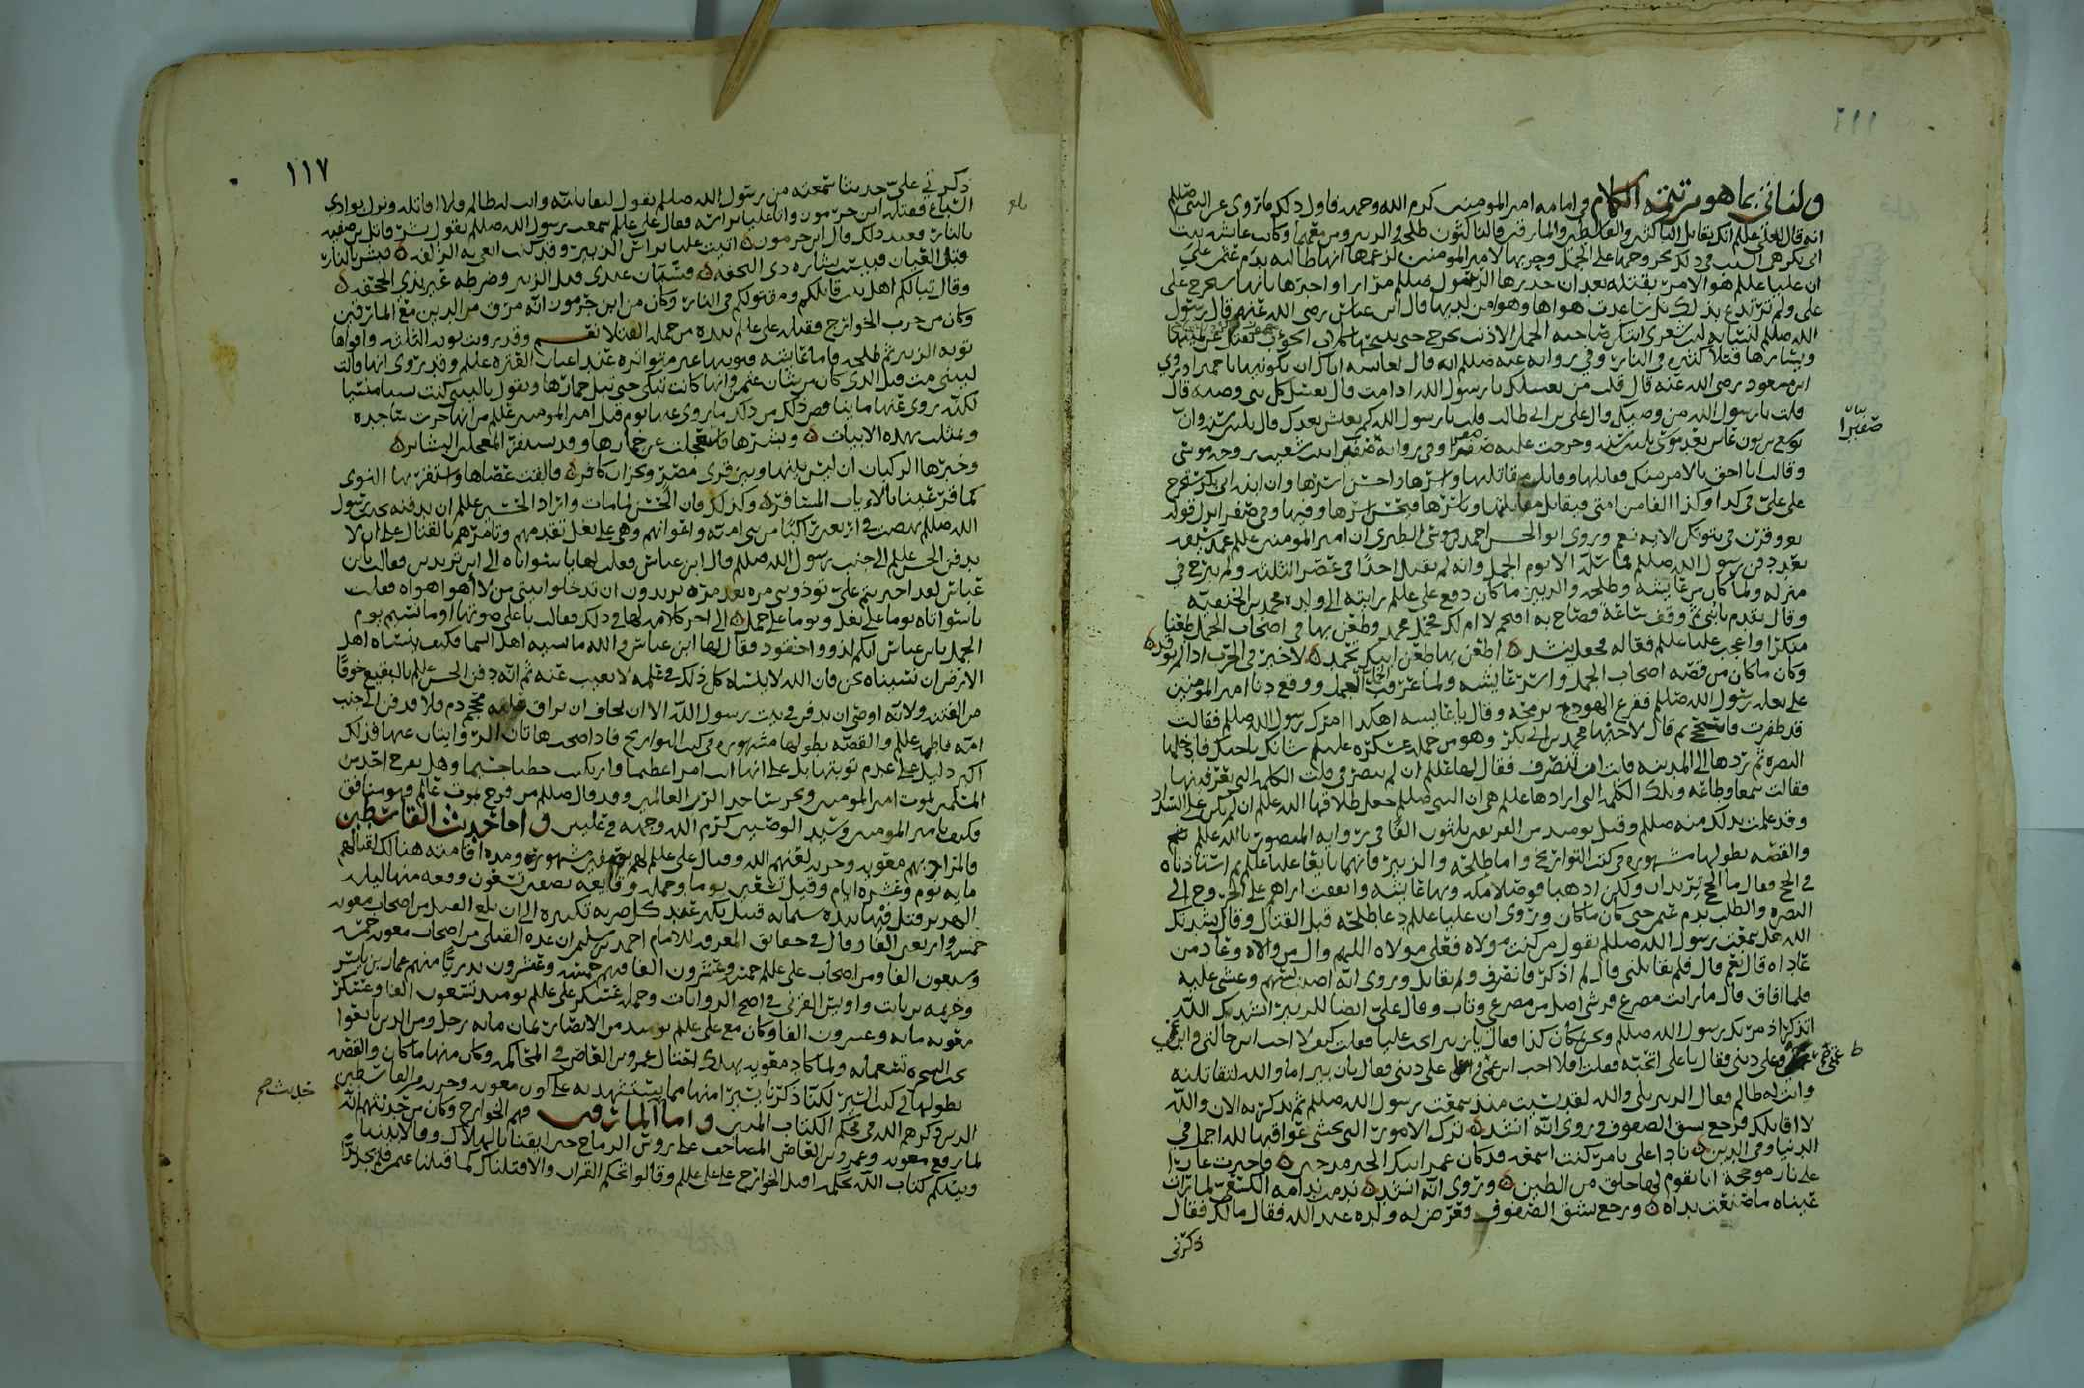 ولنأتي بما هو مرتبته الكلام وامامه امير المومنين كرم الله وجهه فاول ذلك ما روى عن النبي صللم
انه قال لعلي عللم انك تقاتل الناكثين والقاسطين والمارقين فالناكثون طلحه والزبير ومن معهما وكانت عايشه بنت
ابي بكر هي السبب في ذلك بخروجها على الجمل وحربها لامير المومنين لزعمها انها طالبه بدم عثمن
ان عليا عللم هو الامر بقتله بعد ان حذرها الرسول صللم مرارا واخبرها بانها ستخرج على
على ولم ترتدع بذلك بل ساعدت هواها وهوا من لديها قال ابن عباس رضي الله عنهم قال رسول
الله صللم لنسايه ليت شعري ايتكن صاحبة الجمل الاذنب تخرج حتى تنبحها كلاب الحوأب يقتل عن يمينها
ويسارها قتلا كثير في النار وفي روايه عنه صللم انه قال لعايشه اياك ان تكونيها يا حميرا وروي
ابن مسعود رضي الله عنه قال قلت من يغسلك يا رسول الله اذا مت قال يغسل كل نبي وصيه قال
قلت يا رسول الله من وصيك قال علي بن ابي طالب قلت يا رسول الله كم يعيش بعدك قال ثلثين سنه وان
يوشع بن نون عاش بعد موسى ثلثين سنه وخرجت عليه صفيرا وفي روايه صفير ابنت شعيب زوجه موسى
صفيرا
وقالت انا احق بالامر منك فقاتلها وقاتل مقاتليها واسرها واحسن اسرها وان ابنه ابي بكر ستخرج
على علي في كذا وكذا الفا من امتي فيقاتل مقاتليها وياسرها فيحسن اسرها وفيها وفي صفيرا نزل قوله
تع وقرن في بيوتكن الايه نعم وروى ابو الحسن احمد بن موسى الطبري ان امير المومنين عللم غمد سيفه
بعد دفن رسول الله صللم فما سله الا يوم الجمل وانه لم يقتل احدا في عصر الثلثه ولم يبرح في
منزله ولما كان من عايشه وطلحه والزبير ما كان دفع علي عللم رايته الى ولده محمد بن الحنفيه
وقال تقدم يا بني ثم وقف ساعة فصاح به اقحم لا ام لك فحمل محمد وطعن بها في اصحاب الجمل طعنا
منكرا واعجب عليا عللم فعاله فجعل ينشد اطعن بها طعن ابيك تحمد لا خير في الحرب اذا لم توقد
وكان ما كان من قصه اصحاب الجمل واسر عايشه ولما عرقب الجمل ووقع دنا امير المومنين
على بغله رسول الله صللم فقرع الهودج برمحه وقال يا عايشه اهكذا امرك رسول الله صللم فقالت
قد ظفرت فاسجح ثم قال لاخيها محمد بن ابي بكر وهو من جمله عسكره عليلم شانك باختك فادخلها
البصره ثم ردها الى المدينه فابت ان تنصرف فقال لها عللم ان لم تنصرفي قلت الكلمه التي تعرفينها
فقالت سمعا وطاعه وتلك الكلمه التي ارادها عللم هي ان النبي صللم جعل طلاقها اليه عللم ان لم يكن على السداد
وقد علمت بذلك منه صللم وقتل يوميذ من الفريقين ثلثون الفا في روايه المنصور بالله عللم
والقصه بطولها مشهوره في كتب التواريخ واما طلحه والزبير فانهما بايعا عليا عللم ثم استاذناه
في الحج فقال ما الحج تريدان ولكن اذهبا فوصلا مكه وبها عايشه واتفقت اراهم على الخروج الى
البصره والطلب بدم عثمن حتى كان ما كان وروى ان عليا عللم دعا بطلحه قبل القتال وقال نشدتك
الله هل سمعت رسول الله صللم يقول من كنت مولاه فعلي مولاه اللهم وال من والاه وعاد من
عاداه قال نعم قال فلم تقاتلني قال لم اذكر فانصرف ولم يقاتل وروى انه اصيب بسهم وغشي عليه
فلما افاق قال ما رايت مصرع قرشي اضل من مصرعي وتاب وقال علي ايضا للزبير انشدك الله
اتذكر اذ مر بك رسول الله صللم ونحن بمكان كذا فقال يا زبير اتحب عليا فقلت كيف لا احب ابن خالتي وابن
عمتي وعلى ديني فقال يا علي اتحبه فقلت افلا احب ابن عمتي وعلى ديني فقال يا زبير اما والله لتقاتلنه
وانت له ظالم فقال الزبير بلى والله لقد نسيت منذ سمعت رسول الله صللم ثم ذكرته الان والله
لا اقاتلك فرجع يشق الصفوف وروي انه انشد ترك الامور التي تخشى عواقبها لله اجمل في
الدنيا وفي الدين نادا علي بامر كنت اسمعه قد كان عمر ابيك الخير مذ حين فاخترت عارا
على نار موججة انا يقوم لها خلق من الطين وروي انه انشد ندمت ندامه الكسعي لما رات
عيناه ما صنعت يداه ورجع يشق الصفوف فعرض له ولده عبد الله فقال مالك فقال
ذكرني
١١٧
ذكرني علي حديثا سمعته من رسول الله صللم يقول لتقاتلنه وانت له ظالم فلا اقاتله ونزل بوادي
السباع فقتله ابن جرموز واتا عليا براسه فقال علي عللم سمعت رسول الله صللم يقول بشر قاتل بن صفيه
بالنار فعند ذلك قال ابن جرموز اتيت عليا براس الزبير وقد كنت ارجو به الزلفه فبشر بالنار
قبل العيان فبيست بشاره ذي التحفه وسيان عندي قتل الزبير وضرطه عير بذي الجحفه
وقال تبا لكم اهل بيت قاتلكم ومقتولكم في النار وكان من ابن جرموز انه مرق من الدين مع المارقين
وكان من حزب الخوارج فقتله علي عللم بيده من جمله القتلا نعم وقد رويت توبه الثلثه واقواها
توبه الزبير ثم طلحه واما عايشه فتوبتها غير متواتره عند اعيان العتره عللم وقد روى انها قالت
ليتني مت قبل الذي كان من شان عثمن وانها كانت تبكي حتى تبل خمارها وتقول يا ليتني كنت نسيا منسيا
لكنه روى عنها ما ينا قض ذلك من ذلك ما روي عنها يوم قتل امير المومنين عللم من انها خرت ساجده
وتمثلت بهذه الابيات وبشرها فاستعجلت عن خمارها وقد يستفز المعجلين البشاير
وخبرها الركبان ان ليس بينها وبين قرى مصر ونجران كافر فالقت عصاها واستقر بها النوى
كما قر عينا بالاياب المسافر وكذلك فان الحسن لما مات واراد الحسين عللم ان يدفنه عند رسول
الله صللم نهضت في اربعين راكبا من بني اميه واعوانهم وهي على بغل تقدمهم وتامرهم بالقتال على ان لا
يدفن الحسن عللم الى جنب رسول الله صللم قال ابن عباس فقلت لها يا سواتاه الى اين تريدين فقالت يا بن
عباس لقد اجترأتم علي توذوني مره بعد مره تريدون ان تدخلوا بيتي من لا اهوا هواه فقلت
يا سواتاه يوما على بغل ويوما على جمل الى اخر كلامه لها في ذلك فقالت با على صوتها اوما نسيتم يوم
الجمل يا بن عباس انكم لذوو احقود فقال لها ابن عباس والله ما نسيه اهل السما فكيف ينساه اهل
الارض ان نسيناه نحن فان الله لا ينساه كل ذلك في علمه لا يغيب عنه ثم انه دفن الحسن عللم بالبقيع خوفا
من الفتنه ولانه اوصى ان يدفن في بيت رسول الله الا ان يخاف ان يراق فيه محجم دم فلا فدفن الى جنب
امه فاطمه عللم والقصه بطولها مشهوره في كتب التواريخ فاذا صحت هاتان الروايتان عنها فذلك
اكبر دليل على عدم توبتها بل على انها اتت امرا عظيما وارتكبت خطبا جسيما وهل يفرح احد من
المسلمين بموت امير المومنين ويخر ساجدا لرب العالمين وقد قال صللم من فرح بموت عالم فهو منافق
فكيف بامير المومنين وسيد الوصيين كرم الله وجهه في عليين واما حديث القاسطين
فالمراد بهم معويه وحزبه لعنهم الله وقتال علي عللم لهم بصفين مشهوره ومده اقامته هنالك لقتالهم
مايه يوم وعشره ايام وقيل تسعين يوما وجمله وقايعه بصفين تسعون وقعه منها ليله
الهرير قتل فيها بيده ستمايه قتيل يكبر عند كل ضربه تكبيره الى ان بلغ القتلى من اصحاب معويه
خمسه واربعين الفا وقال في حقايق المعرفه للامام احمد بن سليمن ان عده القتلى من اصحاب معويه خمسه
وسبعون الفا ومن اصحاب علي عللم خمسه وعشرون الفا فيهم خمسه وعشرون بدريا منهم عمار بن ياسر
وخزيمه بن ثابت واويس القرني في اصح الروايات وجمله عسكر علي عللم يوميذ تسعون الفا وعسكر
معويه مايه وعشرون الفا وكان مع علي عللم يوميذ من الانصار ثمان مايه رجل ومن الذين بايعوا
تحت الشجره تسعمايه ولما كاد معويه يهلك احتال عمرو بن العاص في المحاكمه وكان منها ما كان والقصه
بطولها في كتب السير لكنا ذكرنا يسيرا منها مما يستشهد به على كون معويه وحزبه من القاسطين
حديث صح
الذين ذكرهم الله في محكم الكتاب المبين واما المارقين فهم الخوارج وكان من حديثهم انه
لما رفع معويه وعمرو بن العاص المصاحف على روس الرماح حين ايقنا بالهلاك وقالا بيننا
وبينكم كتاب الله نحكمه اقبل الخوارج على علي عللم وقالوا نحكم القران والا قتلناك كما قتلنا عثمن فلم يجد بدا